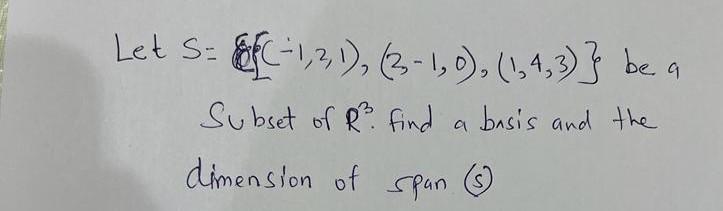 Let S= {(-1,2,1), (2,-1,0), (1,4,3)} be a
Subset of R³. find a basis and the
dimension of span (S)